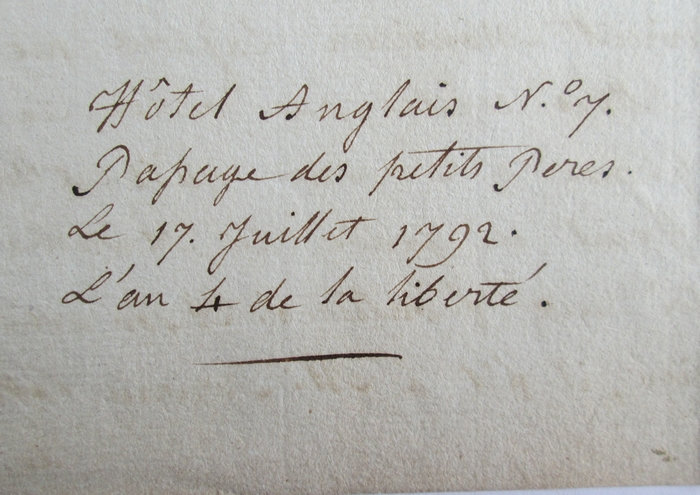 Hôtel Anglais N.º 7.
Paſsage des petits Peres.
Le 17. Juillet 1792.
L'an 4 de la liberté.